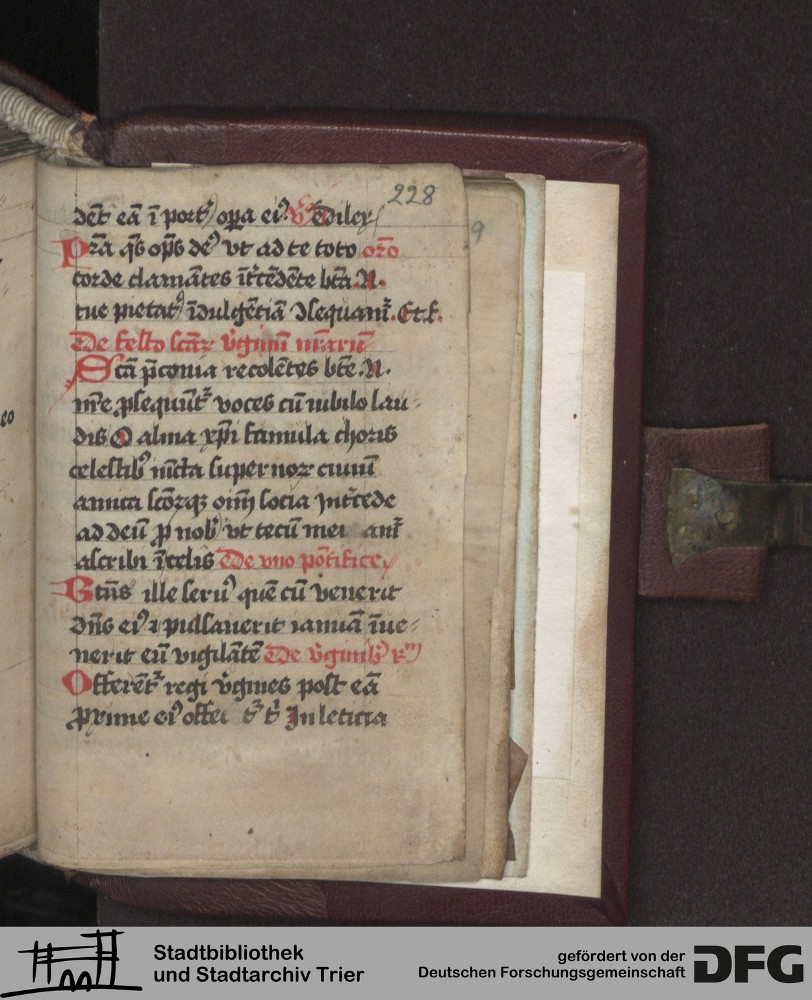 228
dēt eā ī port᷒ oꝑa ei᷒. v̄ Dilex
Prā q̄s op̄s de᷒ vt ad te toto oro
corde clamātes īt͛cēdēte btā .N.
tue pietat᷒ īdulgētiā ↄsequam͛. Et f.
De festo sctāꝝ v̄ginū nr̄arū
Sctā p̄conia recolētes bte .N.
mr̄e ꝓsequūt͛ voces cū iubilo lau-
dis O alma xp̄i famula choris
celestib᷒ iūcta supernoꝝ ciuiū
amica sc̄orꝙ oīm socia Int͛cede
ad deū ꝓ nob᷒ vt tecū me am͛
ascribi ī celis De vno pōtifice
Btūs ille seru᷒ quē cū venerit
dn̄s ei᷒ ⁊ pulsauerit ianuā īue-
nerit eū vigilātē De v̄ginib᷒ r᷒
Offerēt͛ regi v̄gines post eā
ꝓxime ei᷒ offe t͛ t͛ In leticia
9
eo
Stadtbibliothek
und Stadtarchiv Trier
gefördert von der
Deutschen Forschungsgemeinschaft
DFG